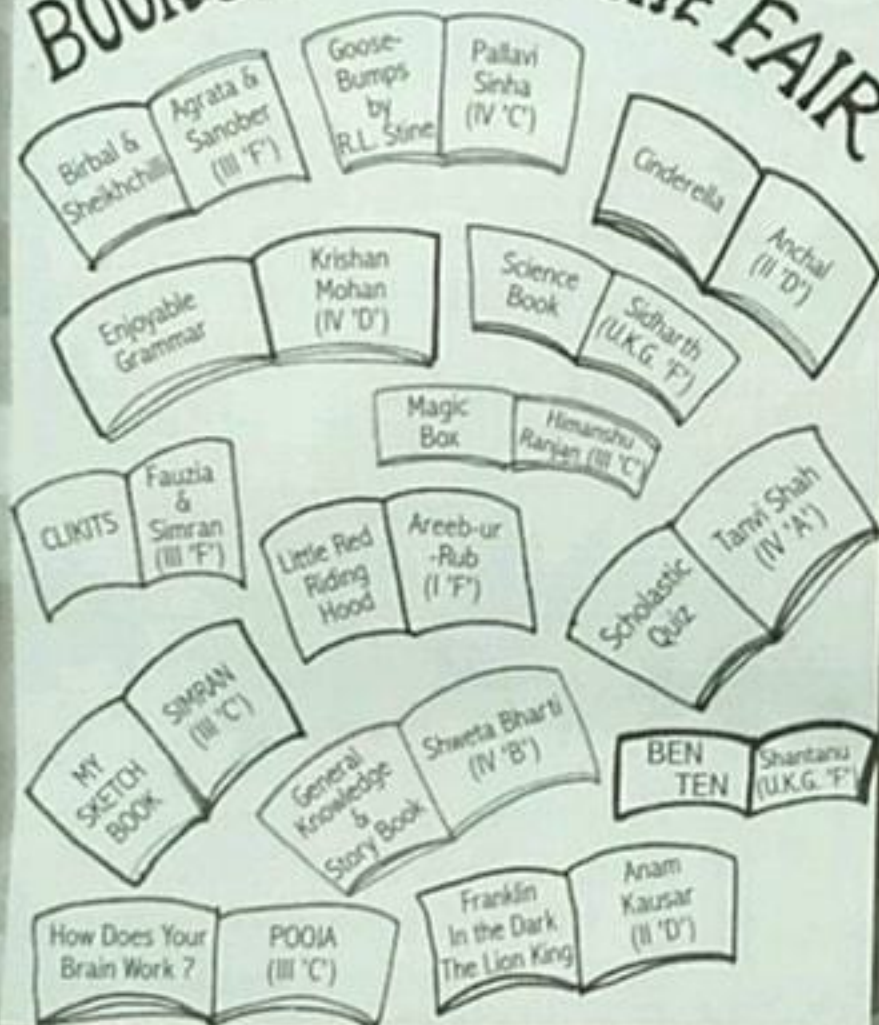 FAIR
Birbal &
Sheikhchilli
Agrata &
Sanober
(III "F")
Goose-
Bumps
by
R.L. Stine
Pallavi
Sinha
(IV "C")
Cinderella
Anchal
(II "D")
Enjoyable
Grammar
Krishan
Mohan
(IV "D")
Science
Book
Sidharth
(U.K.G. "F")
Magic
Box
Himanshu
Ranjan (III "C")
CLIKITS
Fauzia
&
Simran
(III "F")
Little Red
Riding
Hood
Areeb-ur
-Rub
(I "F")
Scholastic
Quiz
Tanvi Shah
(IV "A")
MY
SKETCH
BOOK
SIMRAN
(III "C")
General
Knowledge
&
Story Book
Shweta Bharti
(IV "B")
BEN
TEN
Shantanu
(U.K.G. "F")
How Does Your
Brain Work ?
POOJA
(III "C")
Franklin
In the Dark
The Lion King
Anam
Kausar
(II "D")